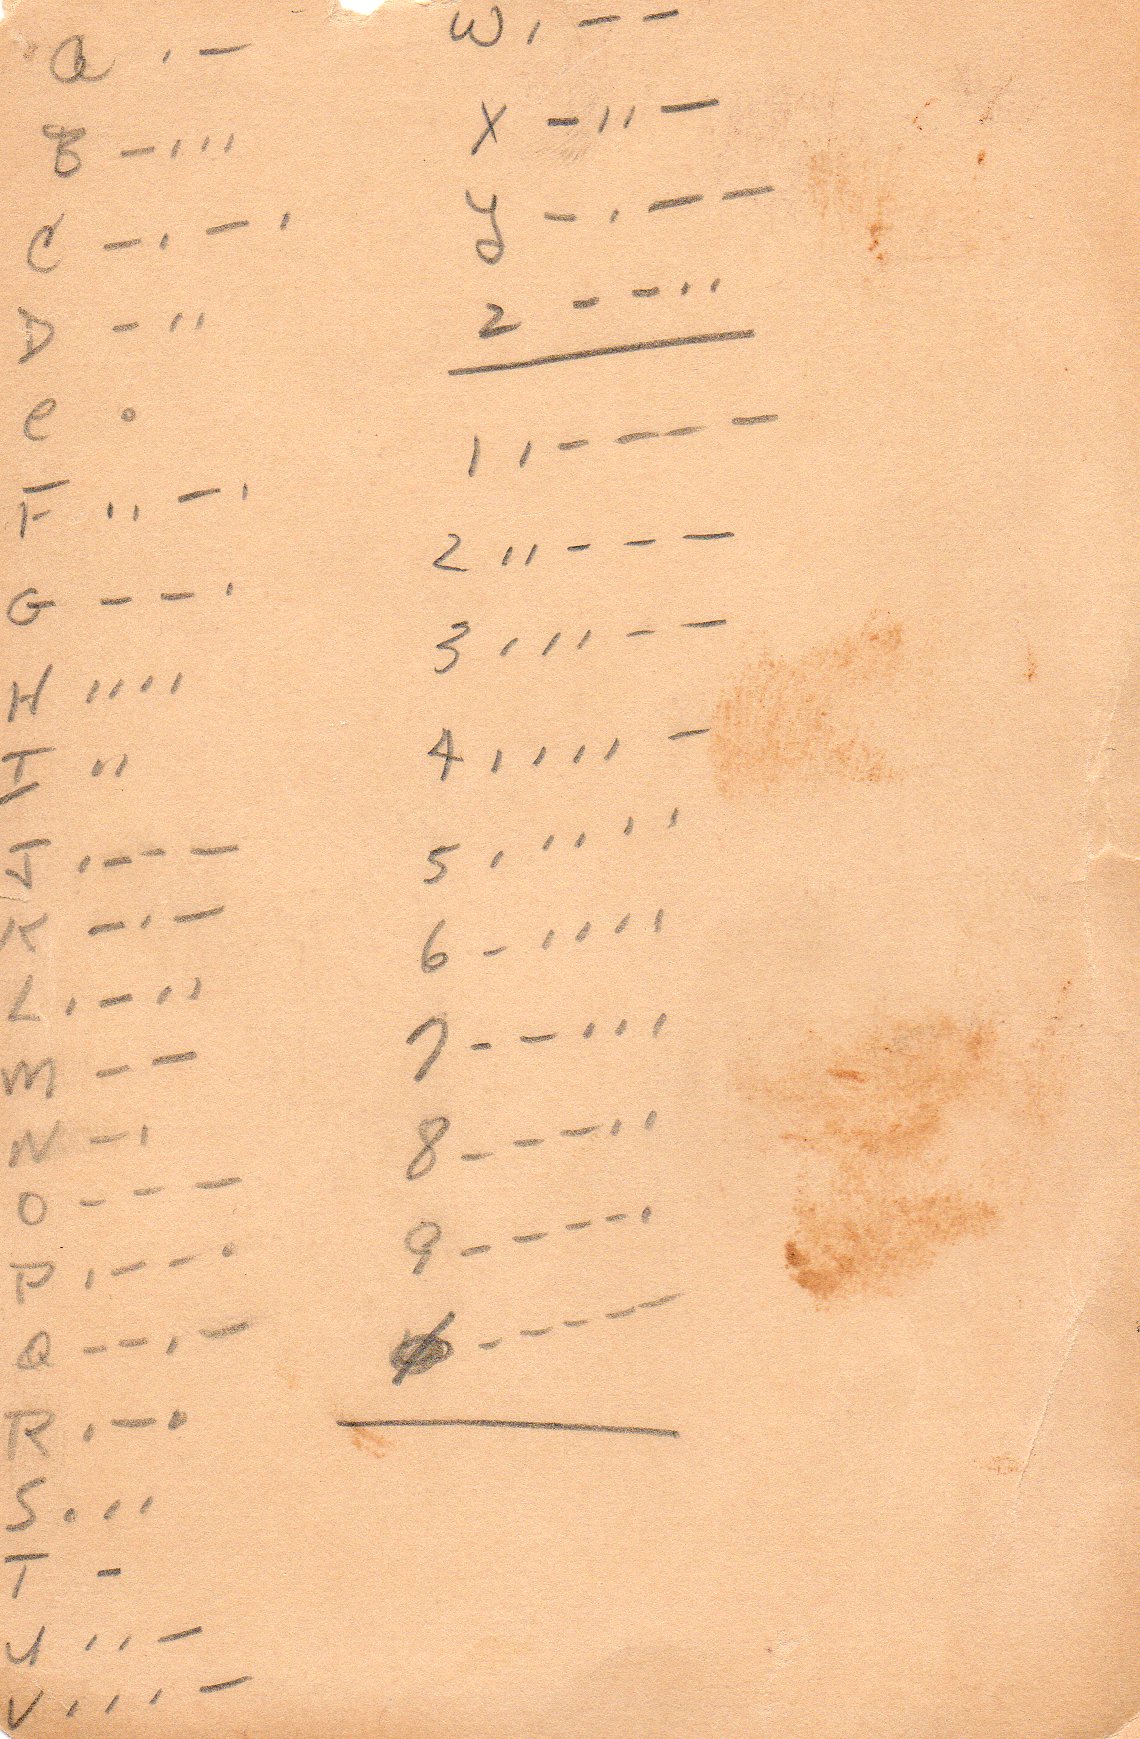 a . -
B - . . .
C - . - .
D - . .
e .
F . . - .
G - - .
H . . . .
I . .
J . - - -
K - . -
L . - . .
M - -
N - .
O - - -
P . - - .
Q - - . -
R . - .
S . . .
T -
U . . -
V . . . -
W . - -
X - . . -
y - . - -
Z - - . .
1 . - - - -
2 . . - - -
3 . . . - -
4 . . . . -
5 . . . . .
6 - . . . .
7 - - . . .
8 - - - . .
9 - - - - .
0 - - - - -